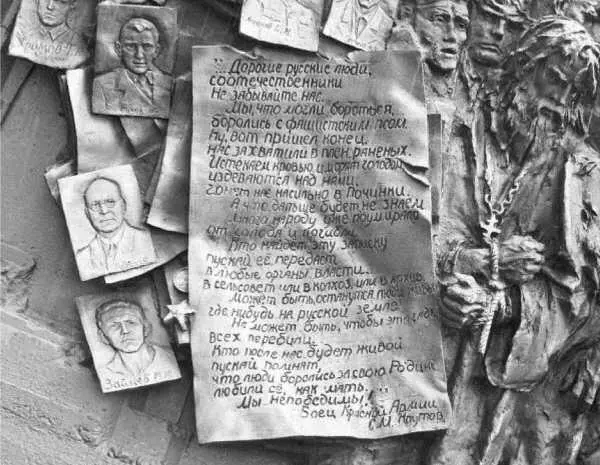 Дорогие русские люди,
соотечественники
Не забывайте нас.
Мы, что могли бороться,
боролись с фашистским псом.
Ну, вот пришел конец.
Нас захватили в плен раненых.
Истекаем кровью и морят голодом,
издеваются над нами,
гонят нас насильно в Починки.
А что дальше будет не знаем
Много народу уже поумирало
от голода и погибли
Кто найдет эту записку
пускай её передаст
в любые органы власти...
в сельсовет или в колхоз, или в архив.
Может быть, останутся люди живы
где нибудь на русской земле
Не может быть, чтобы эти гады
всех перебили.
Кто после нас будет живой
пускай помнят,
что люди боролись за свою Родину
любили её, как мать.
Мы непобедимы!
Боец Красной Армии
С.М.
Зайцев